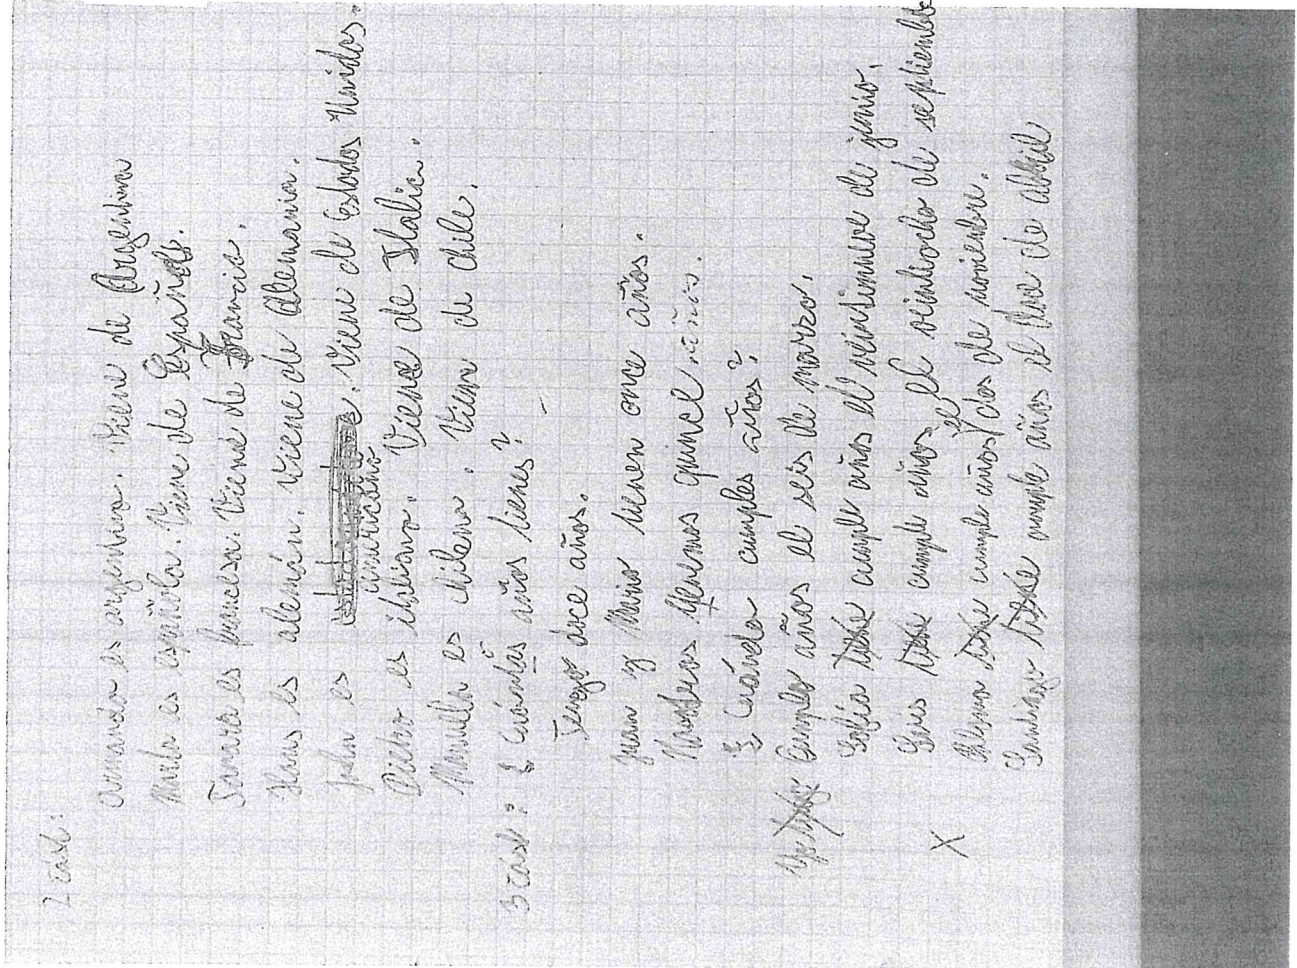 2 část:
Armando es argentino. Viene de Argentina
Marta es española. Viene de España.
es francesa. Viene de Francia.
Hans es alemán. Viene de Alemania.
John es americano. Viene de Estados Unidos.
Pietro es italiano. Viene de Italia.
Manuella es chilena. Viene de Chile.
3 část: ¿Cuántos años tienes?
Tengo doce años.
Juan y Mario tienen once años.
Nosotros tenemos quince años.
¿Cuándo cumples años?
Yo Cumplo años el seis de marzo.
Sofía cumple años el veintinueve de junio.
Luis cumple años el veintiocho de septiembre
cumple años el dos de noviembre.
Santiago cumple años el doce de abril
X